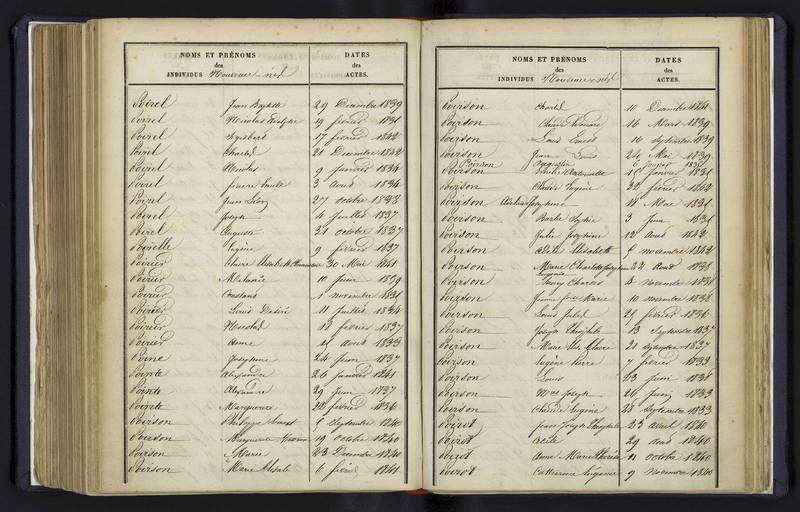 NOMS ET PRÉNOMS
des
INDIVIDUS Nouveaux-nés
DATES
des
ACTES.
Poirel Jean Baptiste 29 Décembre 1839
Poirel Nicolas 19 février
Poirel 17 février 1842
Poirel Charles 21 Décembre 1842
Poirel Nicolas 9 janvier 1834
Poirel Pierre Emile 3 Avril 1834
Poirel Jean 27 octobre 1838
Poirel Joseph 4 juillet 1837
Poirel Auguste 31 octobre 1837
Poirelle Eugène 9 février 1837
Poirier Claire 30 Mai 1841
Poirier Mélanie 10 Juin 1839
Poirier Constant 1 novembre
Poirier Louis Désiré 11 Juillet 1834
Poirier Nicolas 12 février 1837
Poirier Anne Août 1833
Poine Joséphine 24 Juin 1837
Pointe Alexandre 26 janvier 1841
Pointe Alexandre 29 Juin 1837
Pointe Marguerite 28 février 1836
Poirson Philippe Ernest Septembre 1840
Poirson Marguerite 19 octobre 1840
Poirson Marie 23 Décembre 1840
Poirson Marie 6 février 1841
NOMS ET PRÉNOMS
des
INDIVIDUS Nouveaux-nés
DATES
des
ACTES.
Poirson Charles 10 Décembre 1841
Poirson 16 Mars 1839
Poirson Louis Ernest 16 septembre 1839
Poirson Jean Louis 24 Mai 1839
Poirson Augustin 6 janvier
Poirson Antoinette janvier
Poirson Claude Eugène 22 février 1842
Poirson Joséphine 18 Mai
Poirson Barbe 3 Juin
Poirson Julie Joséphine 12 Août 1842
Poirson Adèle Elisabeth novembre 1842
Poirson Marie Charlotte Joséphine 22 Août 1838
Poirson Charles 4 novembre 1838
Poirson Marie 10 novembre 1838
Poirson Louis Jules 29 février 1836
Poirson Joseph Théophile 13 Septembre 1837
Poirson Marie Claire 21 Septembre 1837
Poirson Eugène Pierre 7 février 1833
Poirson Louis 23 Juin
Poirson Joseph 26 Juin 1833
Poirson Claude Eugène 28 Septembre 1833
Poirot Jean Joseph Théophile 23 avril 1840
Poirot Cécile 29 Août 1840
Poirot Anne Marie Thérèse 11 octobre 1840
Poirot Catherine 9 Novembre 1840